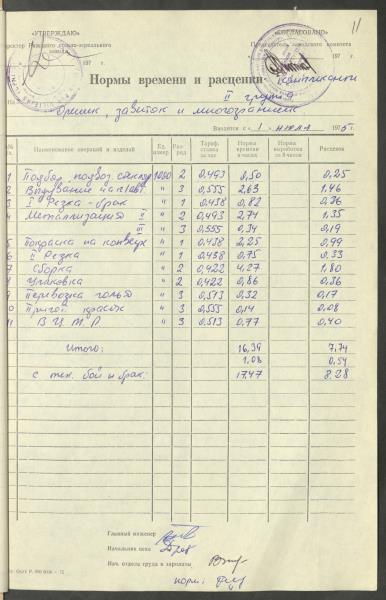 11
«УТВЕРЖДАЮ» «СОГЛАСОВАНО»
Директор Рижского стекло-зеркального завода Председатель заводского комитета
197 г. 197 г.
Нормы времени и расценки
II группа
На орешек, завиток и многогранник
Вводится с « 1 » июля 1975 г.
№ Наименование операций и изделий Ед. измер. Раз-ряд Тариф. ставка за час Норма времени в часах Норма выработки за 8 часов Расценок
1 Подбор, подвоз стеклотр 1000 2 0,493 0,50 0,25
2 Выдувание на п/авт. " 3 0,555 2,63 1,46
3 I Резка - брак " 1 0,438 0,82 0,36
4 Металлизация II " 2 0,493 2,74 1,35
III " 3 0,555 0,34 0,19
5 Покраска на конвейере " 1 0,438 2,25 0,99
6 II Резка " 1 0,438 0,75 0,33
7 Сборка " 2 0,422 4,27 1,80
8 Упаковка " 2 0,422 0,86 0,36
9 Перевозка гольё " 3 0,513 0,32 0,17
10 Пригот. красок " 3 0,555 0,14 0,08
11 В Ц М Р " 3 0,513 0,77 0,40
Итого: 16,39 7,74
1.08 0,54
с тех. бой и брак: 17.47 8.28
Главный инженер
Начальник цеха
Нач. отдела труда и зарплаты
норм: